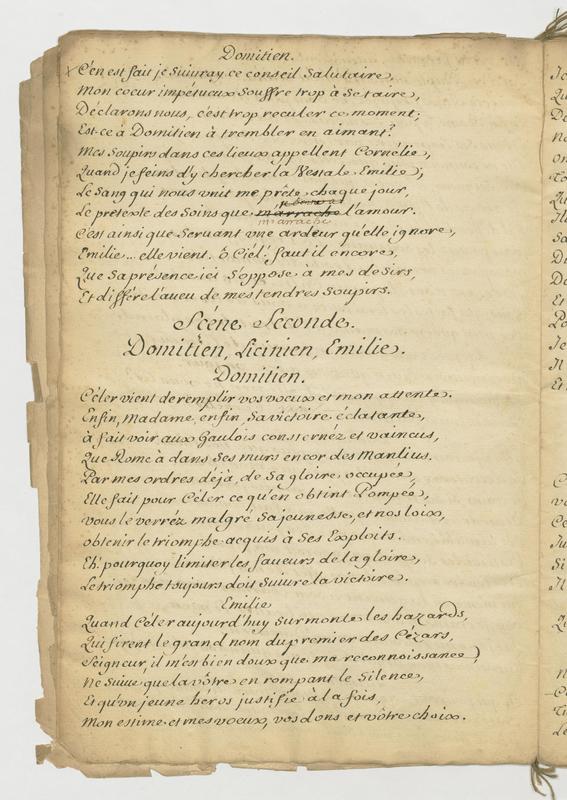 Domitien.
C'en est fait je Suivray ce conseil Salutaire,
Mon coeur impétueux Souffre trop à Se taire,
Déclarons nous, c'est trop reculer ce moment;
Est-ce à Domitien à trembler en aimant?
Mes Soupirs dans ces lieux appellent Cornélie,
Quand je feins d'y chercher la Vestale Emilie;
Le Sang qui nous unit me prête chaque jour,
Le prétexte des Soins que m'arrache l'amour.
m'arrache
C'est ainsi que Servant une ardeur qu'elle ignore,
Emilie... elle vient. ô Ciel! faut il encore,
Que Sa présence ici S'oppose à mes desirs,
Et différe l'aveu de mes tendres Soupirs.
Scéne Seconde.
Domitien, Licinien, Emilie.
Domitien.
Céler vient de remplir vos voeux et mon attente.
Enfin, Madame, enfin Sa victoire éclatante,
à fait voir aux Gaulois consternéz et vaincus,
Que Rome à dans Ses murs encor des Manlius.
Par mes ordres déjà, de Sa gloire occupée,
Elle fait pour Céler ce qu'en obtint Pompée,
vous le verréz malgré Sa jeunesse, et nos loix,
obtenir le triomphe acquis à Ses Exploits.
Eh! pourquoy limiter les faveurs de la gloire,
Le triomphe toujours doit Suivre la victoire.
Emilie
Quand Céler aujourd'huy Surmonte les hazards,
Qui firent le grand nom du premier des Cézars,
Seigneur, il m'est bien doux que ma reconnoissance,
Ne Suive que la vôtre en rompant le Silence,
Et qu'un jeune héros justifie à la fois,
Mon estime et mes voeux, vos dons et vôtre choix.